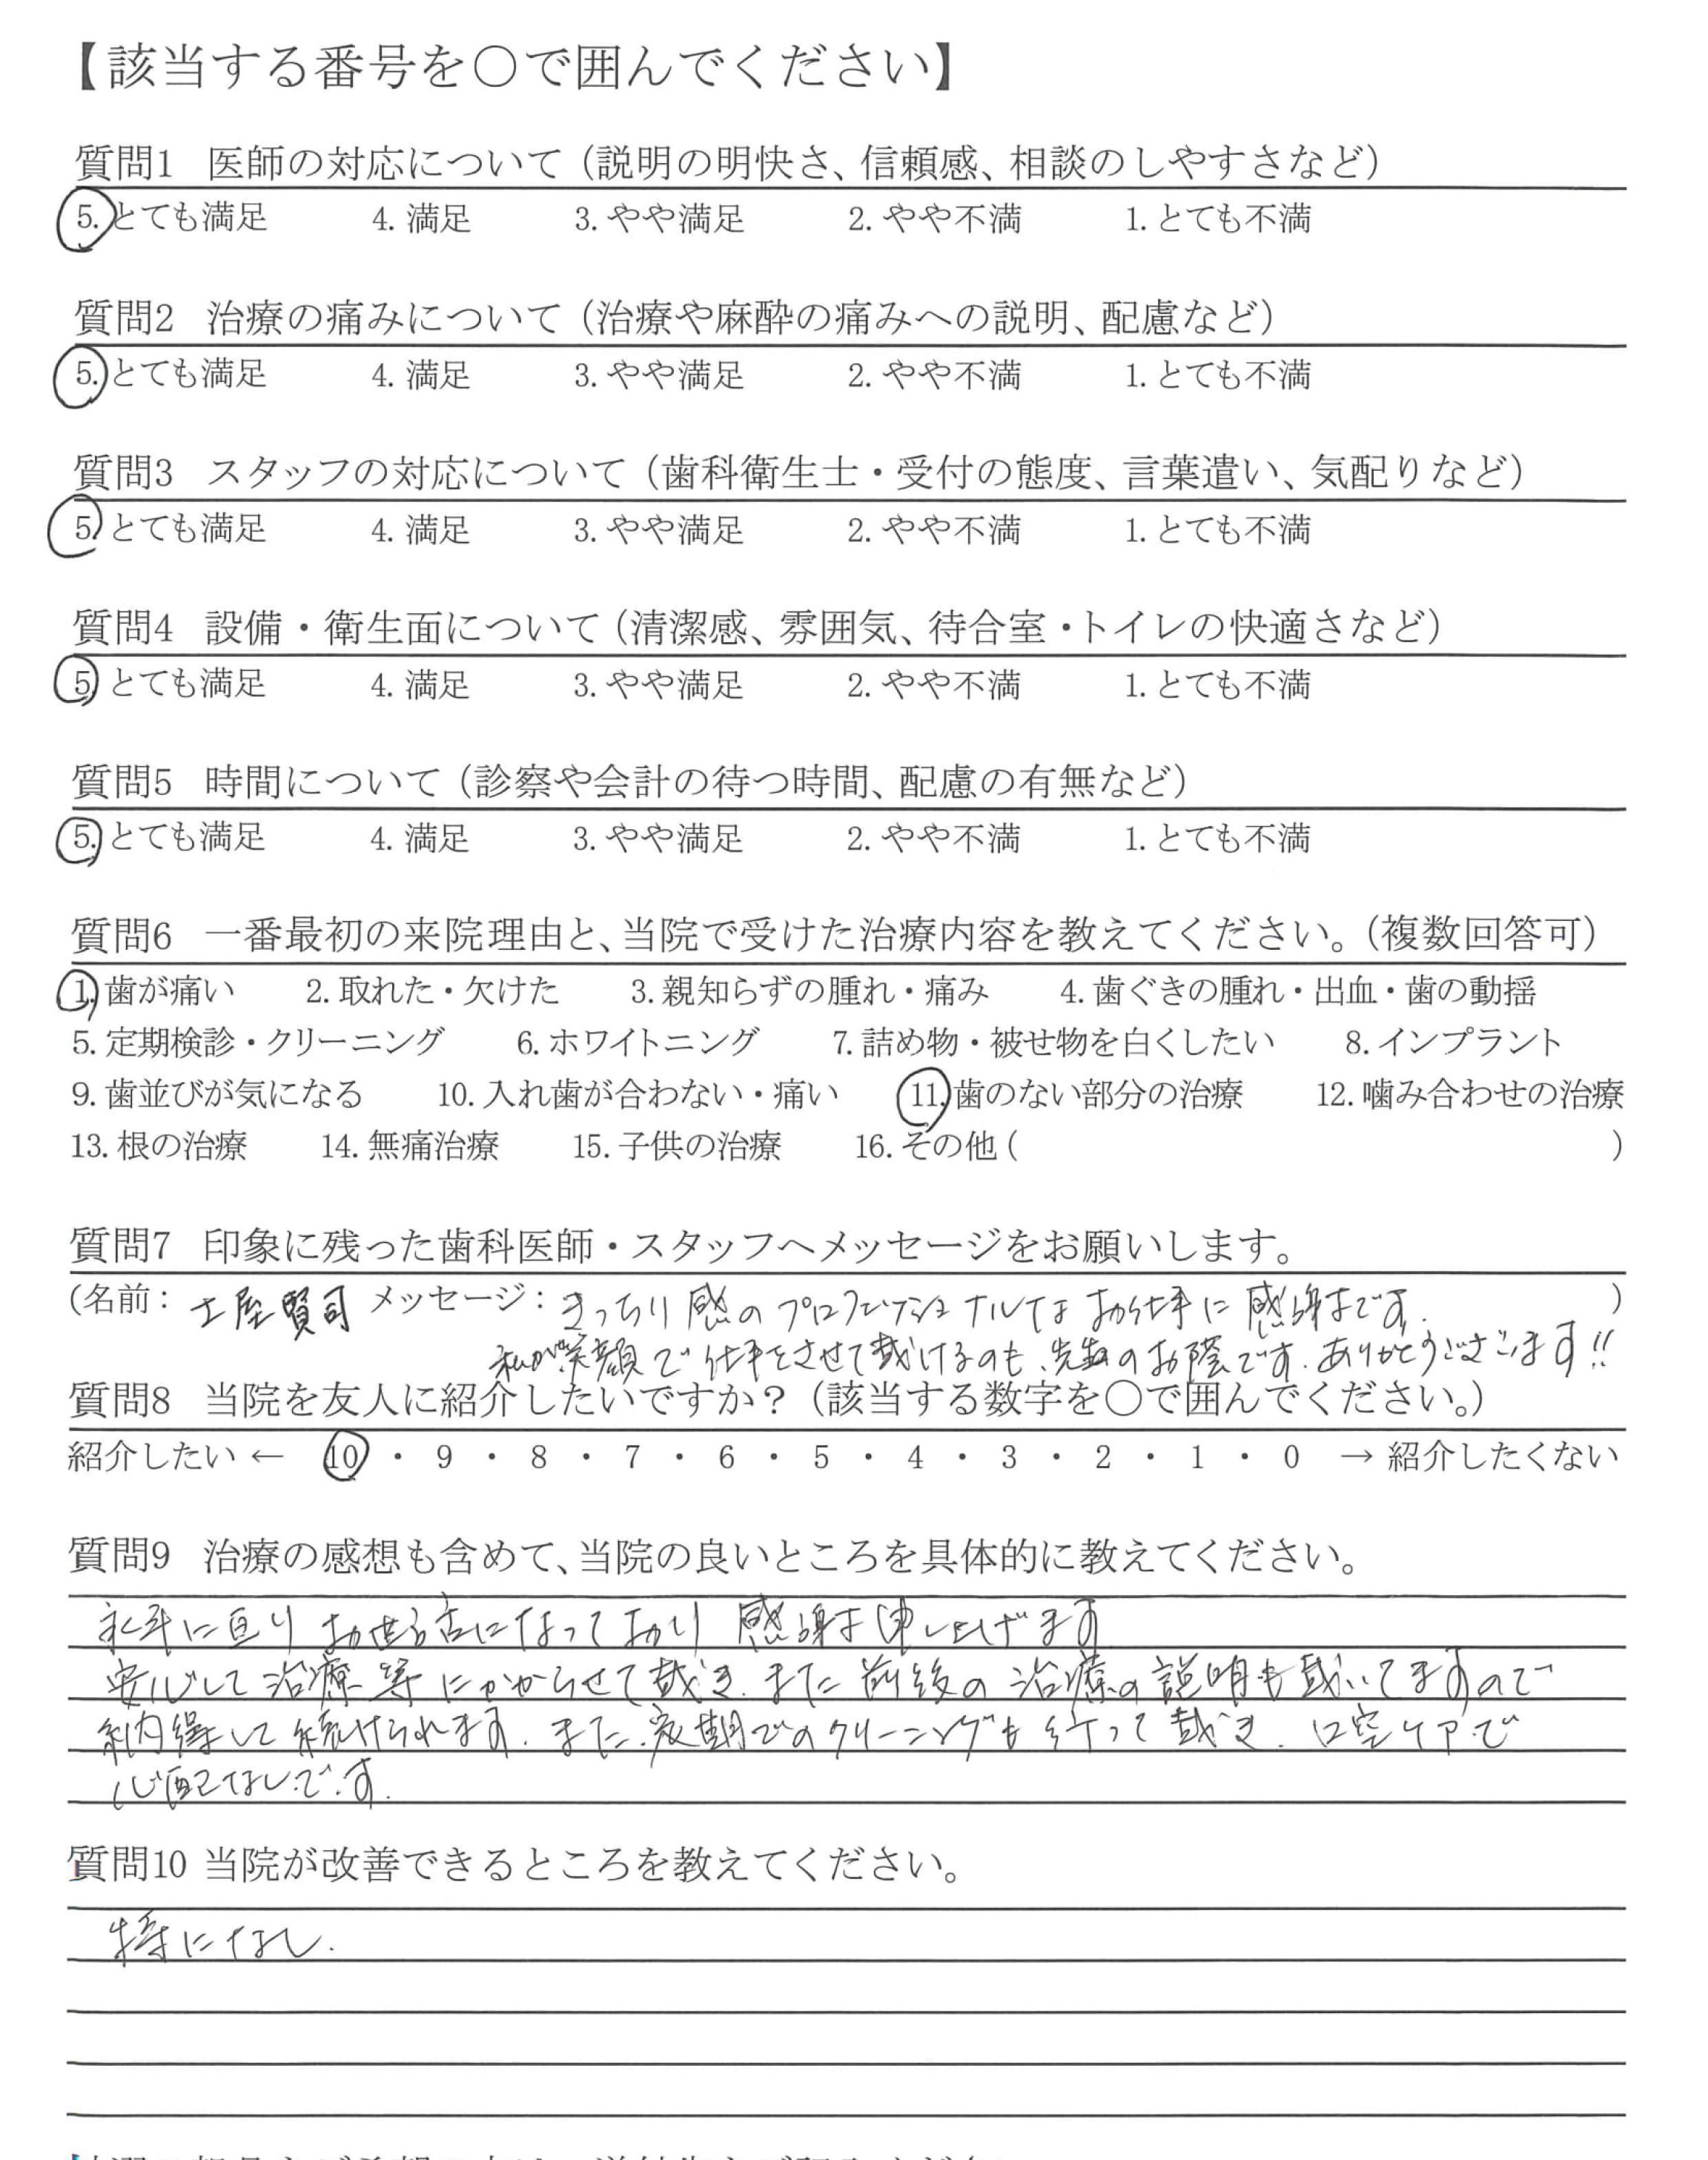 【該当する番号を○で囲んでください】
質問1 医師の対応について（説明の明快さ、信頼感、相談のしやすさなど）
5. とても満足 4. 満足 3. やや満足 2. やや不満 1. とても不満
質問2 治療の痛みについて（治療や麻酔の痛みへの説明、配慮など）
5. とても満足 4. 満足 3. やや満足 2. やや不満 1. とても不満
質問3 スタッフの対応について（歯科衛生士・受付の態度、言葉遣い、気配りなど）
5. とても満足 4. 満足 3. やや満足 2. やや不満 1. とても不満
質問4 設備・衛生面について（清潔感、雰囲気、待合室・トイレの快適さなど）
5. とても満足 4. 満足 3. やや満足 2. やや不満 1. とても不満
質問5 時間について（診察や会計の待つ時間、配慮の有無など）
5. とても満足 4. 満足 3. やや満足 2. やや不満 1. とても不満
質問6 一番最初の来院理由と、当院で受けた治療内容を教えてください。（複数回答可）
1. 歯が痛い 2. 取れた・欠けた 3. 親知らずの腫れ・痛み 4. 歯ぐきの腫れ・出血・歯の動揺
5. 定期検診・クリーニング 6. ホワイトニング 7. 詰め物・被せ物を白くしたい 8. インプラント
9. 歯並びが気になる 10. 入れ歯が合わない・痛い 11. 歯のない部分の治療 12. 噛み合わせの治療
13. 根の治療 14. 無痛治療 15. 子供の治療 16. その他 ( )
質問7 印象に残った歯科医師・スタッフへメッセージをお願いします。
(名前： 土屋賢司 メッセージ： きっちり感のプロフェッショナルなお仕事に感謝です. )
私が笑顔で仕事をさせて戴けるのも、先生のお陰です. ありがとうございます!!
質問8 当院を友人に紹介したいですか？（該当する数字を○で囲んでください。）
紹介したい ← 10 ・ 9 ・ 8 ・ 7 ・ 6 ・ 5 ・ 4 ・ 3 ・ 2 ・ 1 ・ 0 → 紹介したくない
質問9 治療の感想も含めて、当院の良いところを具体的に教えてください。
永年に亘り お世話になっており 感謝申し上げます
安心して治療等にかからせて戴き. また 前後の治療の説明も戴いてますので
納得して続けられます. また. 定期でのクリーニングも行って戴き. 口空ケアで
心配なしです.
質問10 当院が改善できるところを教えてください。
特になし.